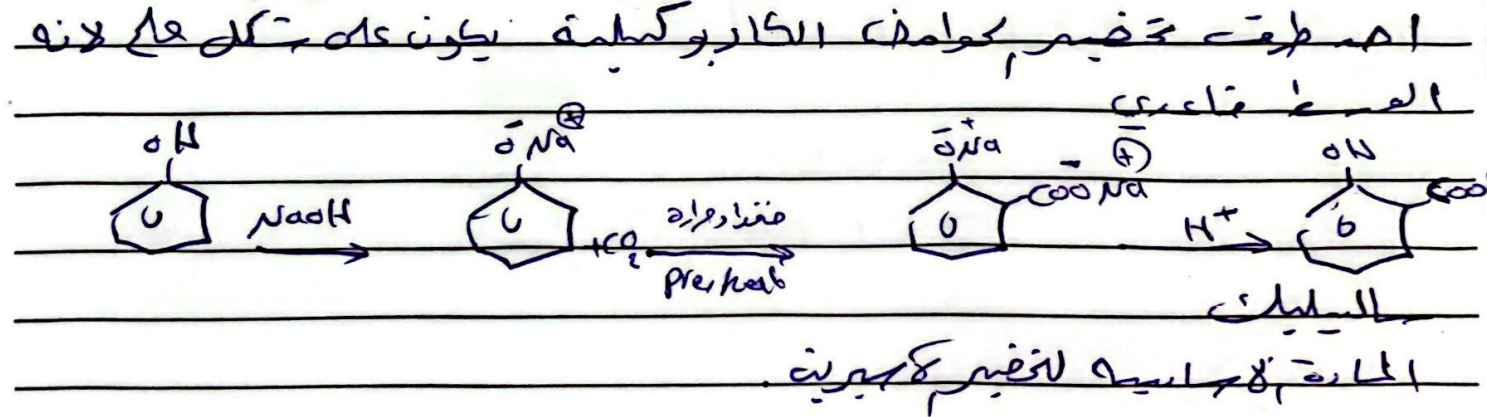 احد طرق تحضير لحوامض الكاربوكسيلية يكون على شكل ملح لانه
الوسط قاعدي
OH NaOH ONa +CO2 ضغط وحرارة pres/heat ONa COONa H+ OH COO
السليلك
المادة الاساسيه لتحضير الاسبرين.